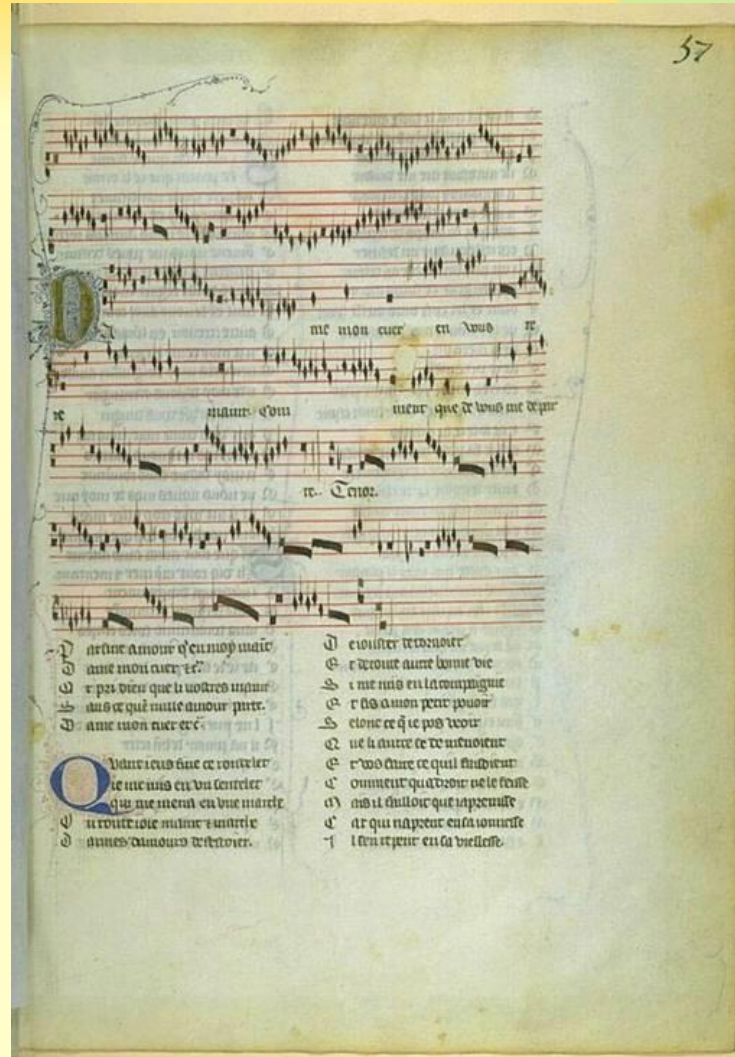 57
D A me mon cuer en vous re
re maint Com ment que de vous me depar
te. Tenor.
Par fine amour q̄ en moy maīt
Dame mon cuer ⁊c̄.
Et pri dieu que li vostres maint
Sans ce que nulle amour parte.
Dame mon cuer et c̄.
Quant ieus fine ce rondelet
Je me mis en un sentelet
Qui me mena en une
Ou toute ioie maint ⁊
Darmes damours
De iouster de tornoier
Et de toute autre bonne vie
Si me mis en la compaignie
Et fis a mon petit pouoir
Selonc ce q̄ ie pos veoir
Que li autre se demenoient
Et vos faire ce quil faisoient
Comment qu a droit ne le feisse
Mais il failloit que iapreinsse
Car qui naprent en sa ionnesse
Il sen repent en sa viellesse.